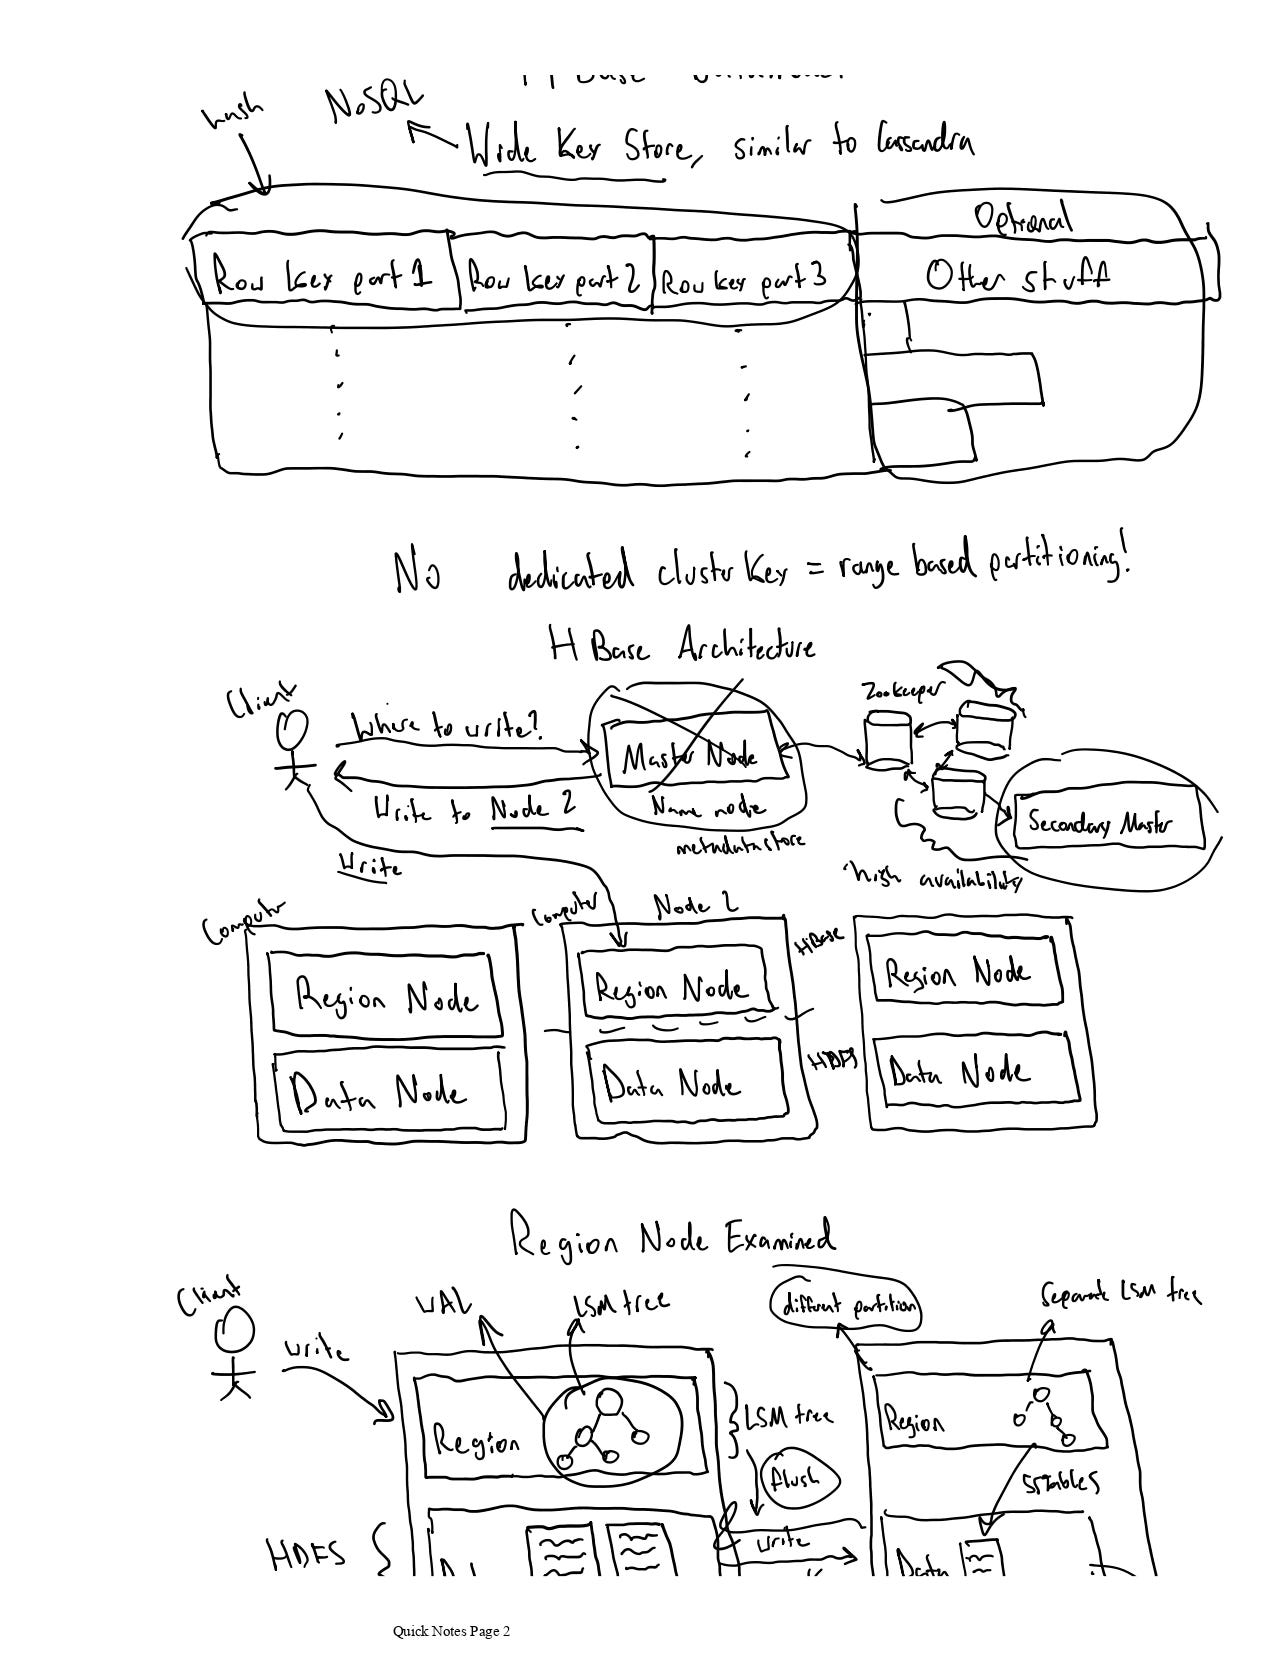 hash
NoSQL
Wide Key Store, similar to Cassandra
Optional
Row key part 1 Row key part 2 Row key part 3 Other stuff
No dedicated cluster key = range based partitioning!
HBase Architecture
Client
Where to write?
Write to Node 2
Write
Master Node
Name node
metadata store
Zookeeper
Secondary Master
high availability
Computer
Region Node
Data Node
Computer
Node 2
Region Node
Data Node
HBase
HDFS
Region Node
Data Node
Region Node Examined
Client
write
WAL
LSM tree
different partition
Separate LSM tree
Region
LSM tree
flush
Region
SSTables
HDFS
write
Data
Quick Notes Page 2